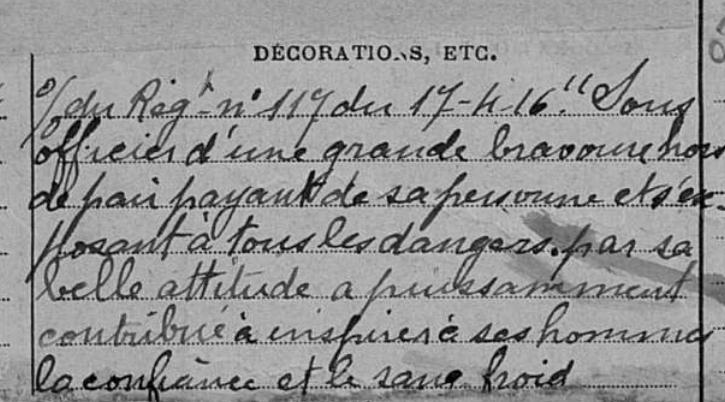 DÉCORATIONS, ETC.
O/ du Régt n° 117 du 17-4-16 " Sous
officier d'une grande bravoure hors
de pair payant de sa personne et s'ex-
posant à tous les dangers. par sa
belle attitude a puissamment
contribué à inspirer à ses hommes
la confiance et le sang froid